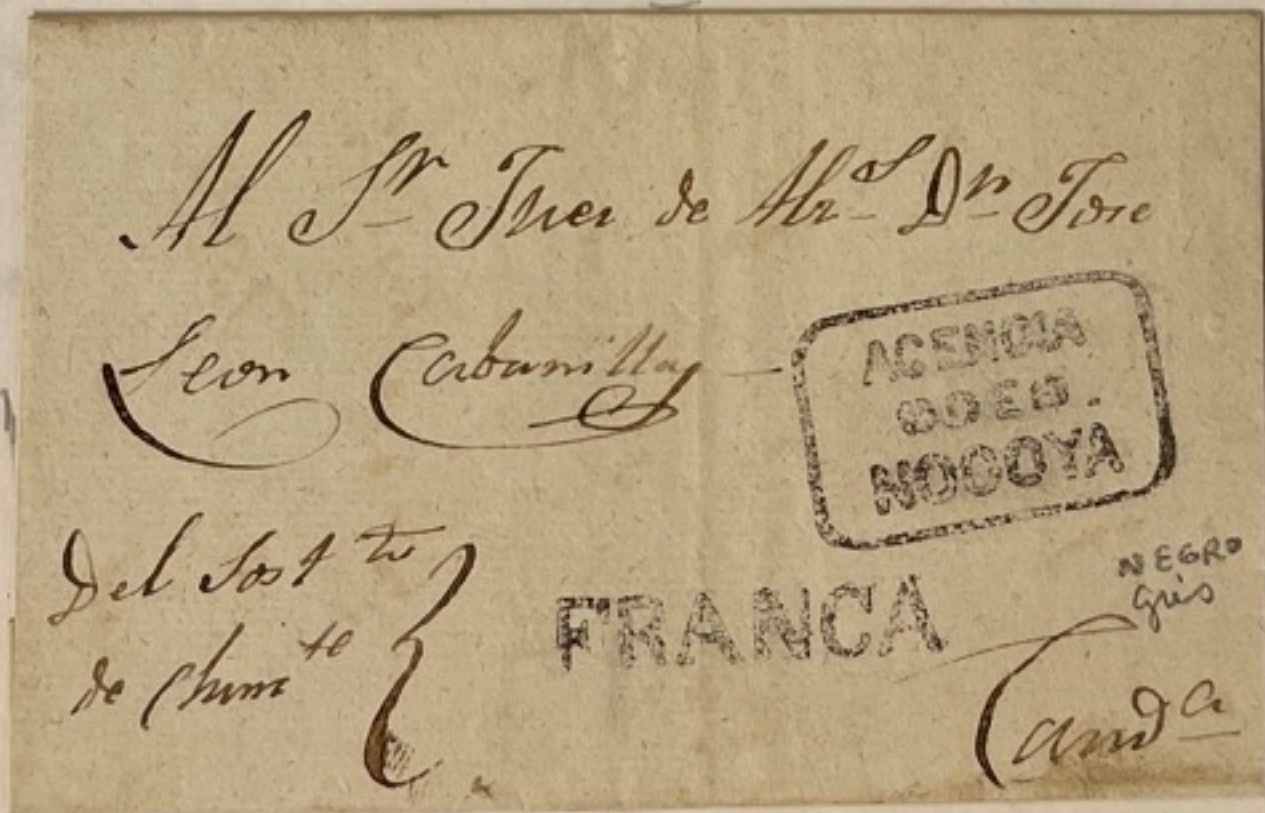 Al Sr Juez de Alzs Dn Jose
Leon Cabanillas
AGENCIA
DE
NOGOYA
Del Sost to
de Chimte
FRANCA
NEGRO
gris
Candа